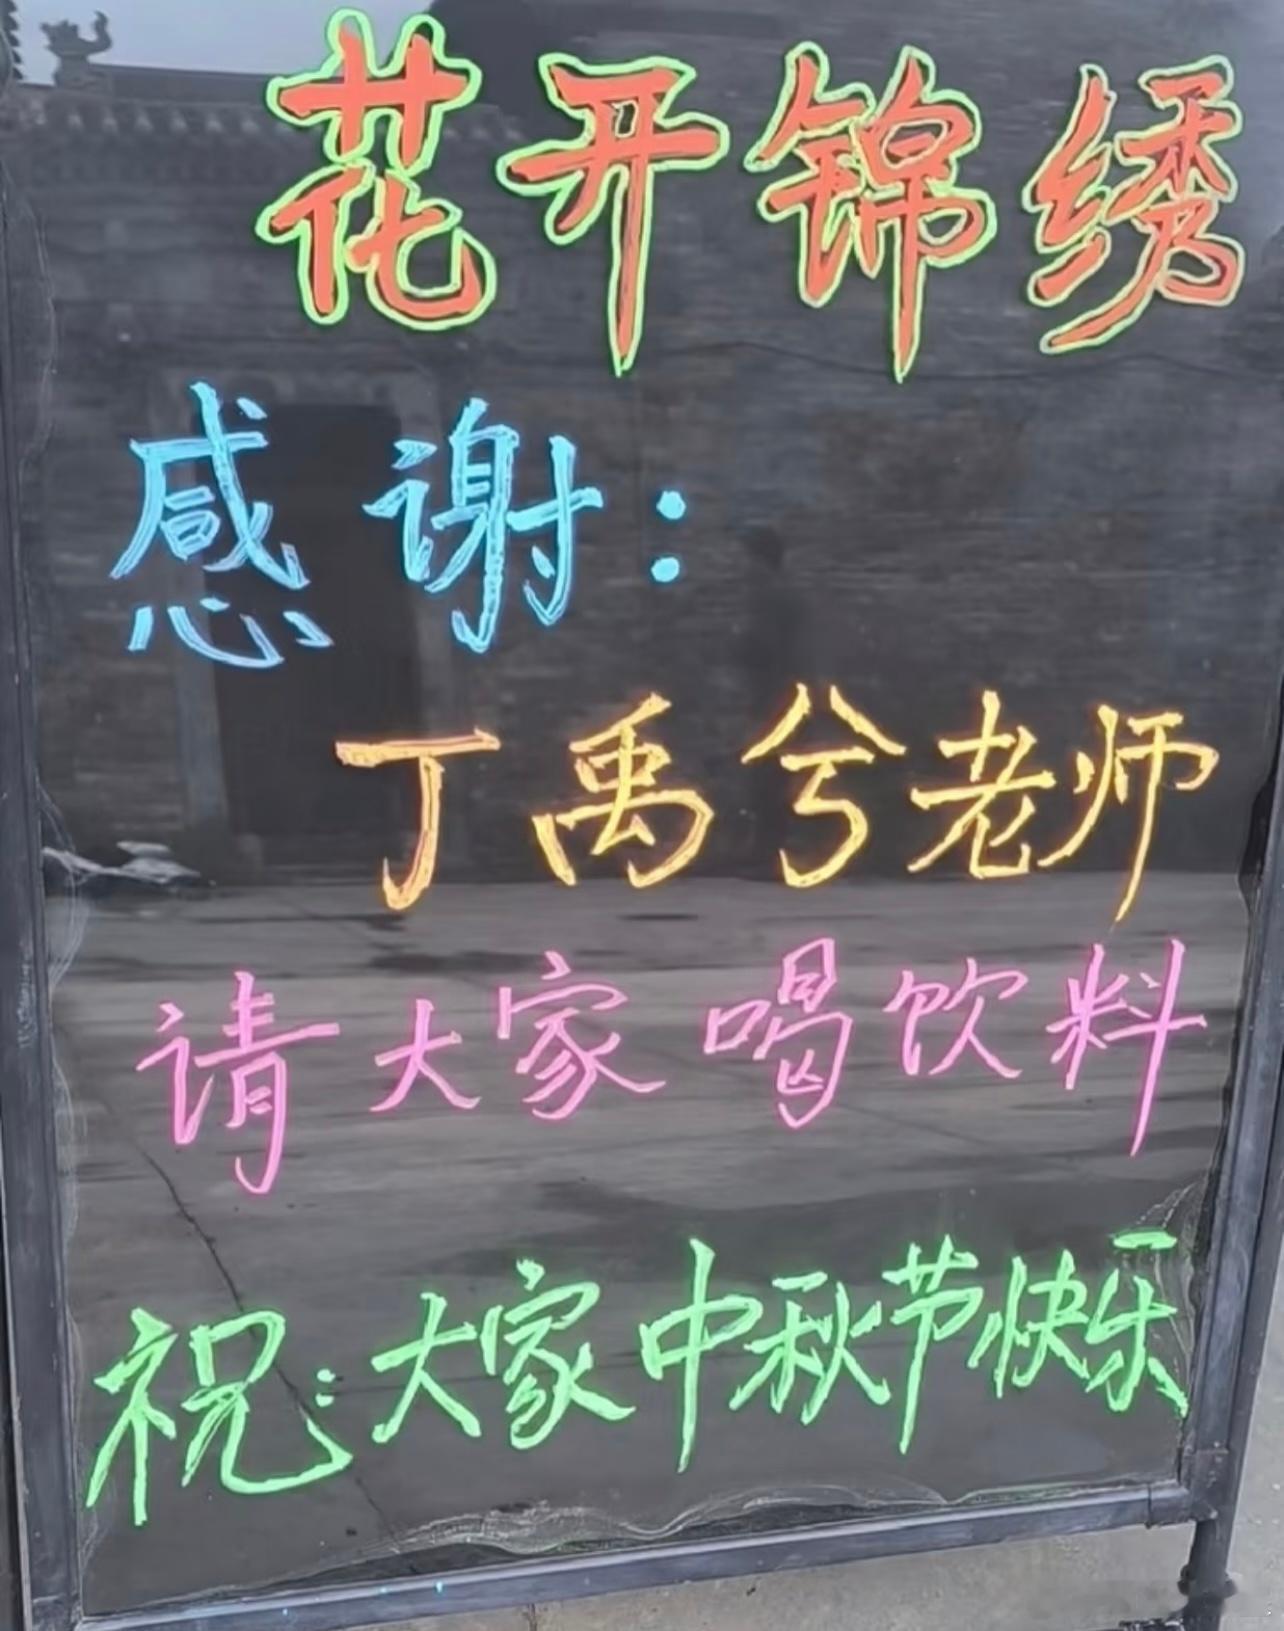 花开锦绣
感谢：
丁禹兮老师
请大家喝饮料
祝：大家中秋节快乐